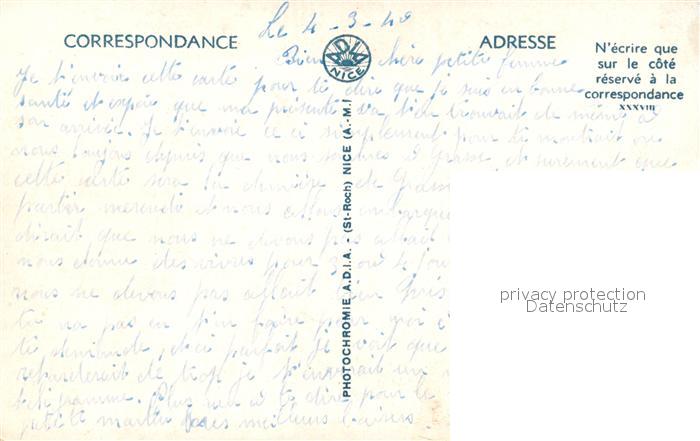 Le 4-3-40
CORRESPONDANCE
ADIA
NICE
ADRESSE
N'écrire que
sur le côté
réservé à la
correspondance
XXXVIII
Bien chère petite femme
Je t'envoie cette carte pour te dire que je suis en bonne
santé et espère que ma présente va t'en trouvait de même a
son arrivée. Je t'envoie ce ci simplement pour te montrait ou
nous logeons depuis que nous sommes à Grasse et surement que
cette carte sera la dernière de Grasse
partir mercredi et nous allons
dirait que nous ne devons pas allait
nous donne des vivres pour 3 ou 4 jou
nous ne devons pas allait
tu na pas en t'en faire pour moi
te demande, et si parfoit je voit que
retarderait de trop je t'enverrait un
télégramme. Plus rien a te dire, pour le
petit martin. meilleurs baisers
PHOTOCHROMIE A.D.I.A. - (St-Roch) NICE (A.-M.)
privacy protection
Datenschutz